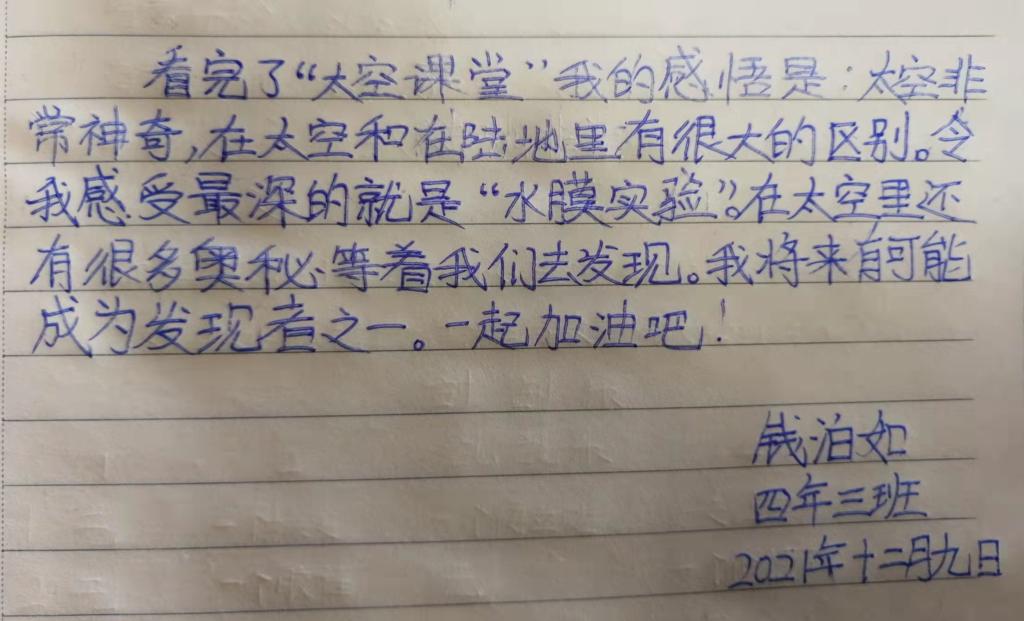 看完了“太空课堂”我的感悟是：太空非
常神奇,在太空和在陆地里有很大的区别。令
我感受最深的就是“水膜实验”。在太空里还
有很多奥秘等着我们去发现。我将来有可能
成为发现者之一。一起加油吧！
钱泊如
四年三班
2021年十二月九日